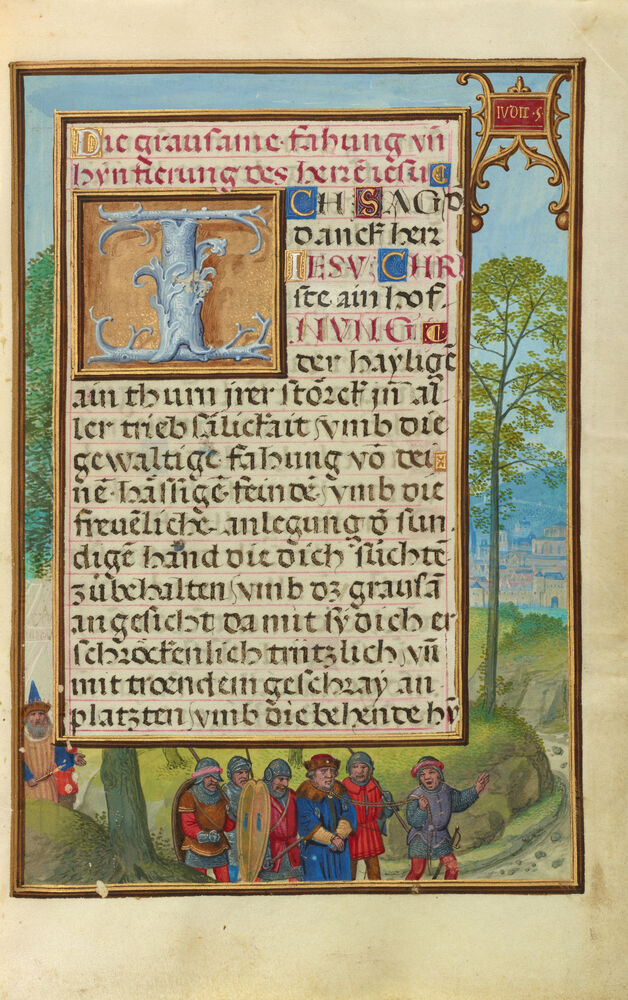 IVDIC·5·
Die grausame·fahung vñ
hynfierung des herrē iesu
I
CH·SAG
danck herr
IESV·CHRI
ste ain hof·
NVNG
der hayligē
ain thurn jrer störck jn̄ al-
ler trieb sälickait vmb die
gewaltige fahung vō dei
nē·hässigē·feindē vmb die
freuēliche·anlegung d̄ sun·
digē hand die dich sůchtē
zůbehalten vmb dz grausā
angesicht da mit sy dich er
schröckenlich trützlich vñ
mit troendem geschray an
platzten vmb die behende hy̅